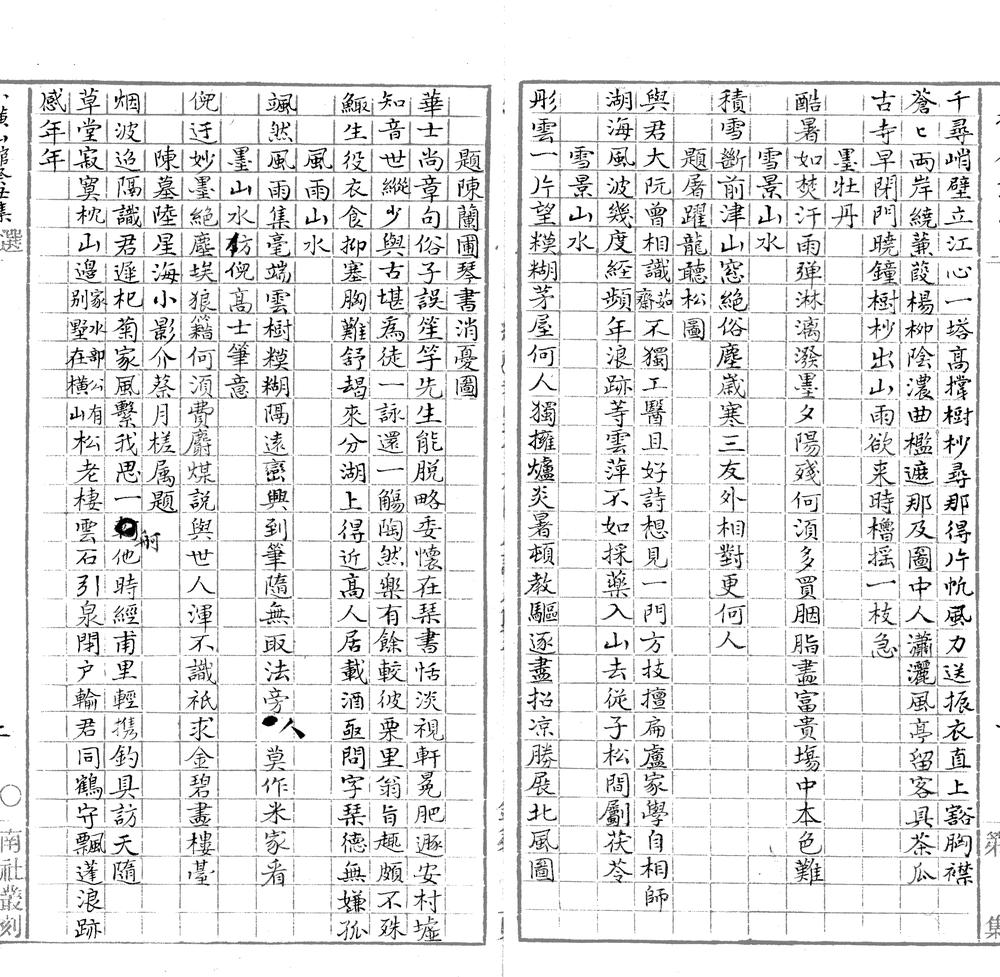 千尋峭壁立江心一塔高撐樹杪尋那得片帆風力送振衣直上豁胸襟
蒼〻兩岸繞蒹葭楊柳陰濃曲檻遮那及圖中人瀟灑風亭留客具茶瓜
古寺早閉門曉鐘樹杪出山雨欲来時櫓摇一枝急
墨牡丹
酷暑如焚汗雨彈淋漓潑墨夕陽殘何須多買胭脂畫富貴塲中本色難
雪景山水
積雪斷前津山窓絕俗塵嵗寒三友外相對更何人
題屠躍龍聽松圖
與君大阮曾相識茹齋不獨工醫且好詩想見一門方技擅扁盧家學自相師
湖海風波幾度経頻年浪跡等雲萍不如採藥入山去從子松間劚茯苓
雪景山水
彤雲一片望糢糊茅屋何人獨擁爐炎暑頓教驅逐盡招凉勝展北風圖
題陳蘭圃琴書消憂圖
華士尚章句俗子誤笙竽先生能脱略委懷在琹書恬淡視軒冕肥遯安村墟
知音世縱少與古堪為徒一詠還一觴陶然樂有餘較彼栗里翁旨趣頗不殊
鯫生役衣食抑塞胸難舒朅來分湖上得近高人居載酒亟問字琹德無嫌孤
風雨山水
颯然風雨集毫端雲樹糢糊隔遠巒興到筆隨無取法旁人莫作米家看
墨山水仿倪高士筆意
倪迂妙墨絕塵埃狼籍何須費麝煤説與世人渾不識祇求金碧畫樓臺
陳墓陸星海小影介蔡月槎属題
烟波迢隔識君遲杞菊家風繫我思一舸他時經甫里輕携釣具訪天隨
草堂寂寞枕山邊家水部公有別墅在橫山松老棲雲石引泉閉户輸君同鶴守飄蓬浪跡
感年年
選
南社叢刻
集